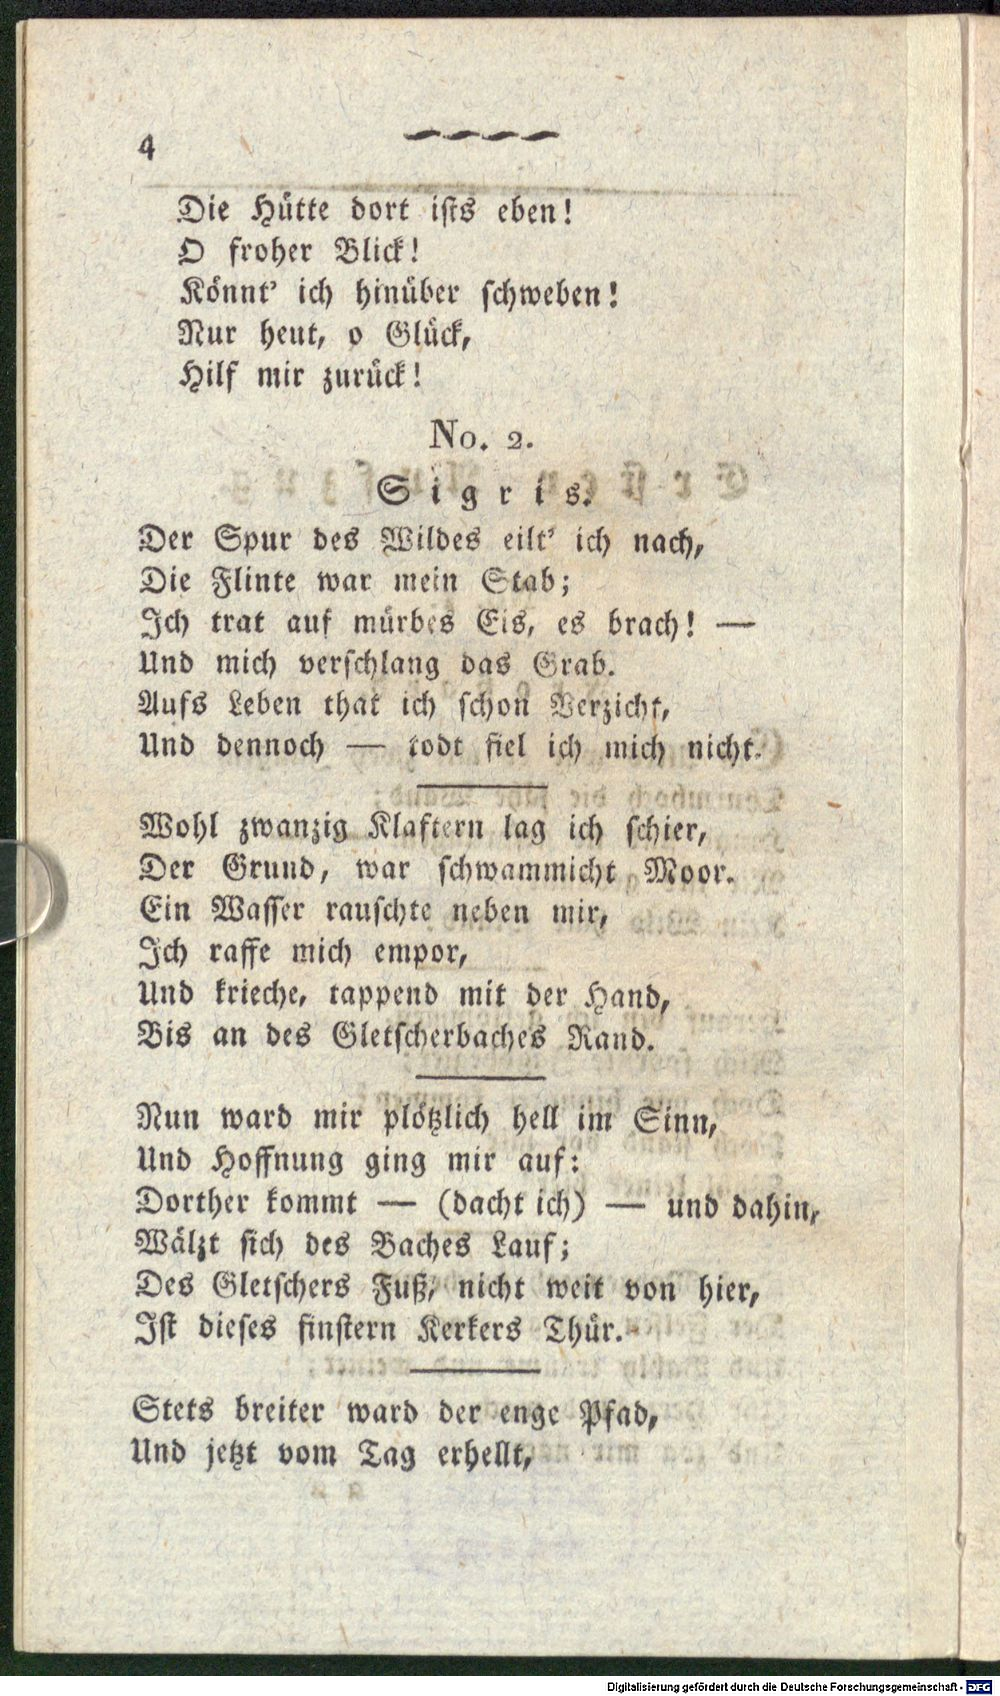 4
Die Hütte dort ists eben!
O froher Blick!
Könnt' ich hinüber schweben!
Nur heut, o Glück,
Hilf mir zurück!
No. 2.
Sigris.
Der Spur des Wildes eilt' ich nach,
Die Flinte war mein Stab;
Ich trat auf mürbes Eis, es brach! —
Und mich verschlang das Grab.
Aufs Leben that ich schon Verzicht,
Und dennoch — todt fiel ich mich nicht.
Wohl zwanzig Klaftern lag ich schier,
Der Grund, war schwammicht Moor.
Ein Wasser rauschte neben mir,
Ich raffe mich empor,
Und krieche, tappend mit der Hand,
Bis an des Gletscherbaches Rand.
Nun ward mir plötzlich hell im Sinn,
Und Hoffnung ging mir auf:
Dorther kommt — (dacht ich) — und dahin,
Wälzt sich des Baches Lauf;
Des Gletschers Fuß, nicht weit von hier,
Ist dieses finstern Kerkers Thür.
Stets breiter ward der enge Pfad,
Und jetzt vom Tag erhellt,
Digitalisierung gefördert durch die Deutsche Forschungsgemeinschaft - DFG